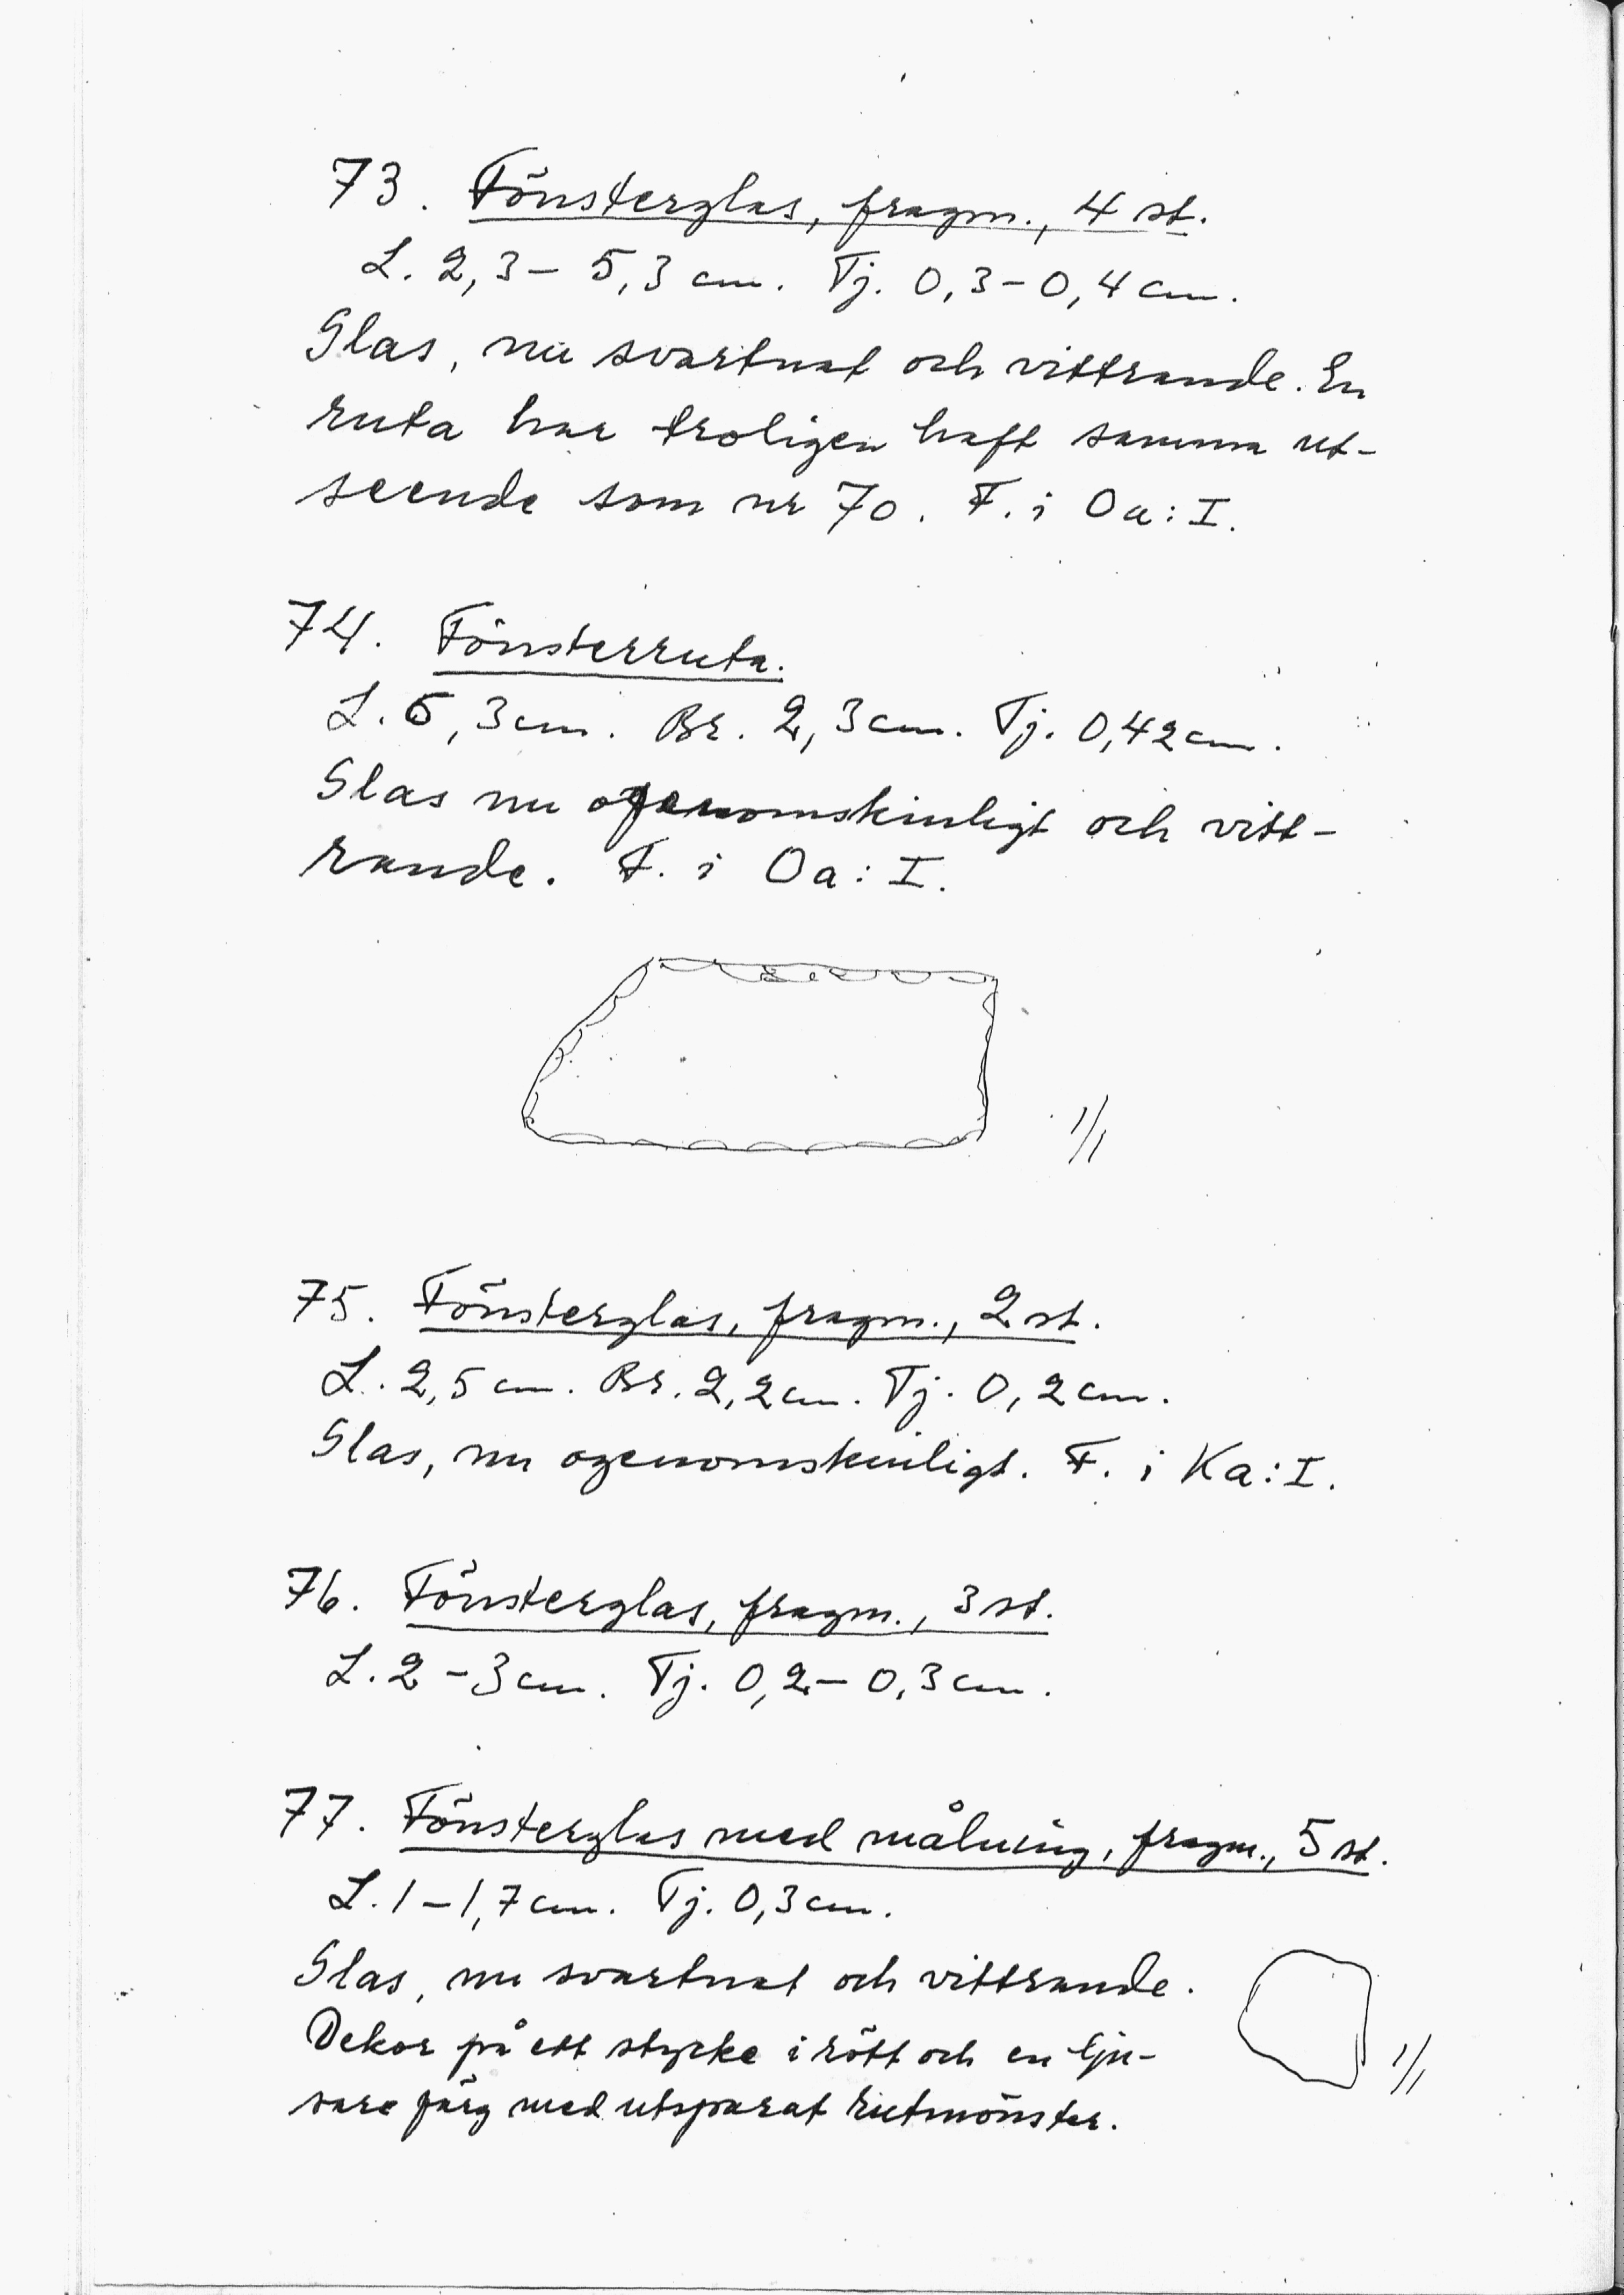 73. Fönsterglas, fragm., 4 st.
L. 2,3 – 5,3 cm. Tj. 0,3 – 0,4 cm.
Glas, nu svartnat och vittrande. En
ruta har troligen haft samma ut-
seende som nr 70. F. i Oa: I.
74. Fönsterruta.
L. 5,3 cm. Br. 2,3 cm. Tj. 0,42 cm.
Glas nu ogenomskinligt och vitt-
rande. F. i Oa: I.
1/1
75. Fönsterglas, fragm., 2 st.
L. 2,5 cm. Br. 2,2 cm. Tj. 0,2 cm.
Glas, nu ogenomskinligt. F. i Ka: I.
76. Fönsterglas, fragm., 3 st.
L. 2 – 3 cm. Tj. 0,2 – 0,3 cm.
77. Fönsterglas med målning, fragm., 5 st.
L. 1 – 1,7 cm. Tj. 0,3 cm.
Glas, nu svartnat och vittrande.
Dekor på ett stycke i rött och en lju-
sare färg med utsparat rutmönster.
1/1